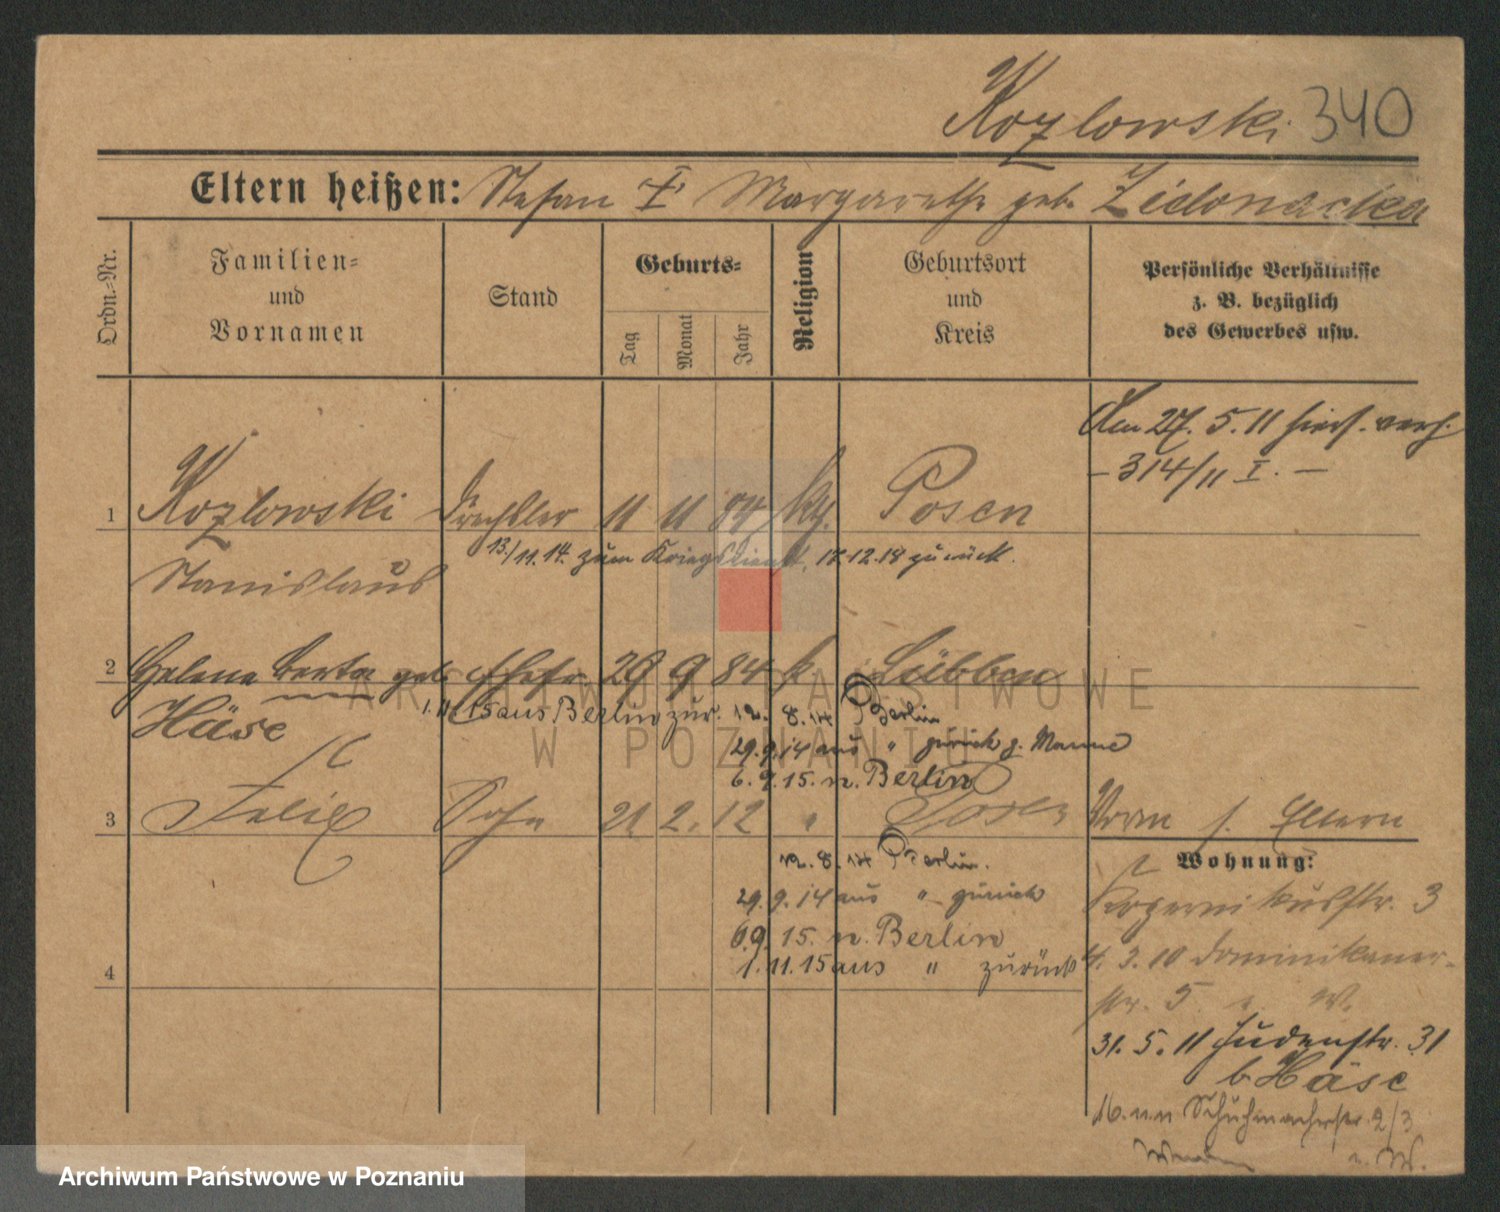 Kozlowski 340
Eltern heißen: Stefan Margarethe geb. Zielonacka
Ordn.-Nr.
Familien- und Vornamen
Stand
Geburts-
Tag
Monat
Jahr
Religion
Geburtsort und Kreis
Persönliche Verhältnisse z. B. bezüglich des Gewerbes usw.
Am 27. 5. 11 hier verh.
– 314/11 I. –
1 Kozlowski Drechsler 11 11 84 kth. Posen
13./11. 14. zum Kriegsdienst, 17.12.18 zurück.
Stanislaus
2 Helena Berta geb. Ehefr. 29 9 84 k Lübben
Häse
1. 11. 15 aus Berlin zur. 12. 8. 14 Berlin
29. 9. 14 aus " zurück z. Manne
6. 9. 15. n. Berlin
3 Felix Sohn 21 2. 12 " Posen
Vorm s. Eltern
12. 8. 14 Berlin.
29. 9. 14 aus " zurück
6.9. 15. n. Berlin
1. 11. 15 aus " zurück
4
Wohnung:
Kopernikusstr. 3
4. 3. 10 Dominikaner-
str. 5 W.
31. 5. 11 Judenstr. 31
b. Häse
Schuhmacherstr. 2/3
W.
ARCHIWUM PAŃSTWOWE
W POZNANIU
Archiwum Państwowe w Poznaniu